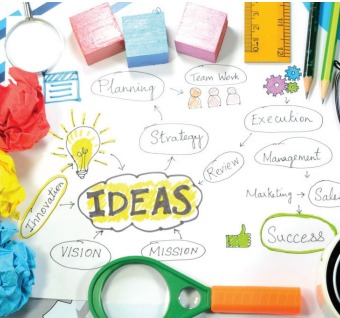 Planning
Team Work
Strategy
Execution
Review
Management
Innovation
IDEAS
Marketing
Sales
VISION
MISSION
Success